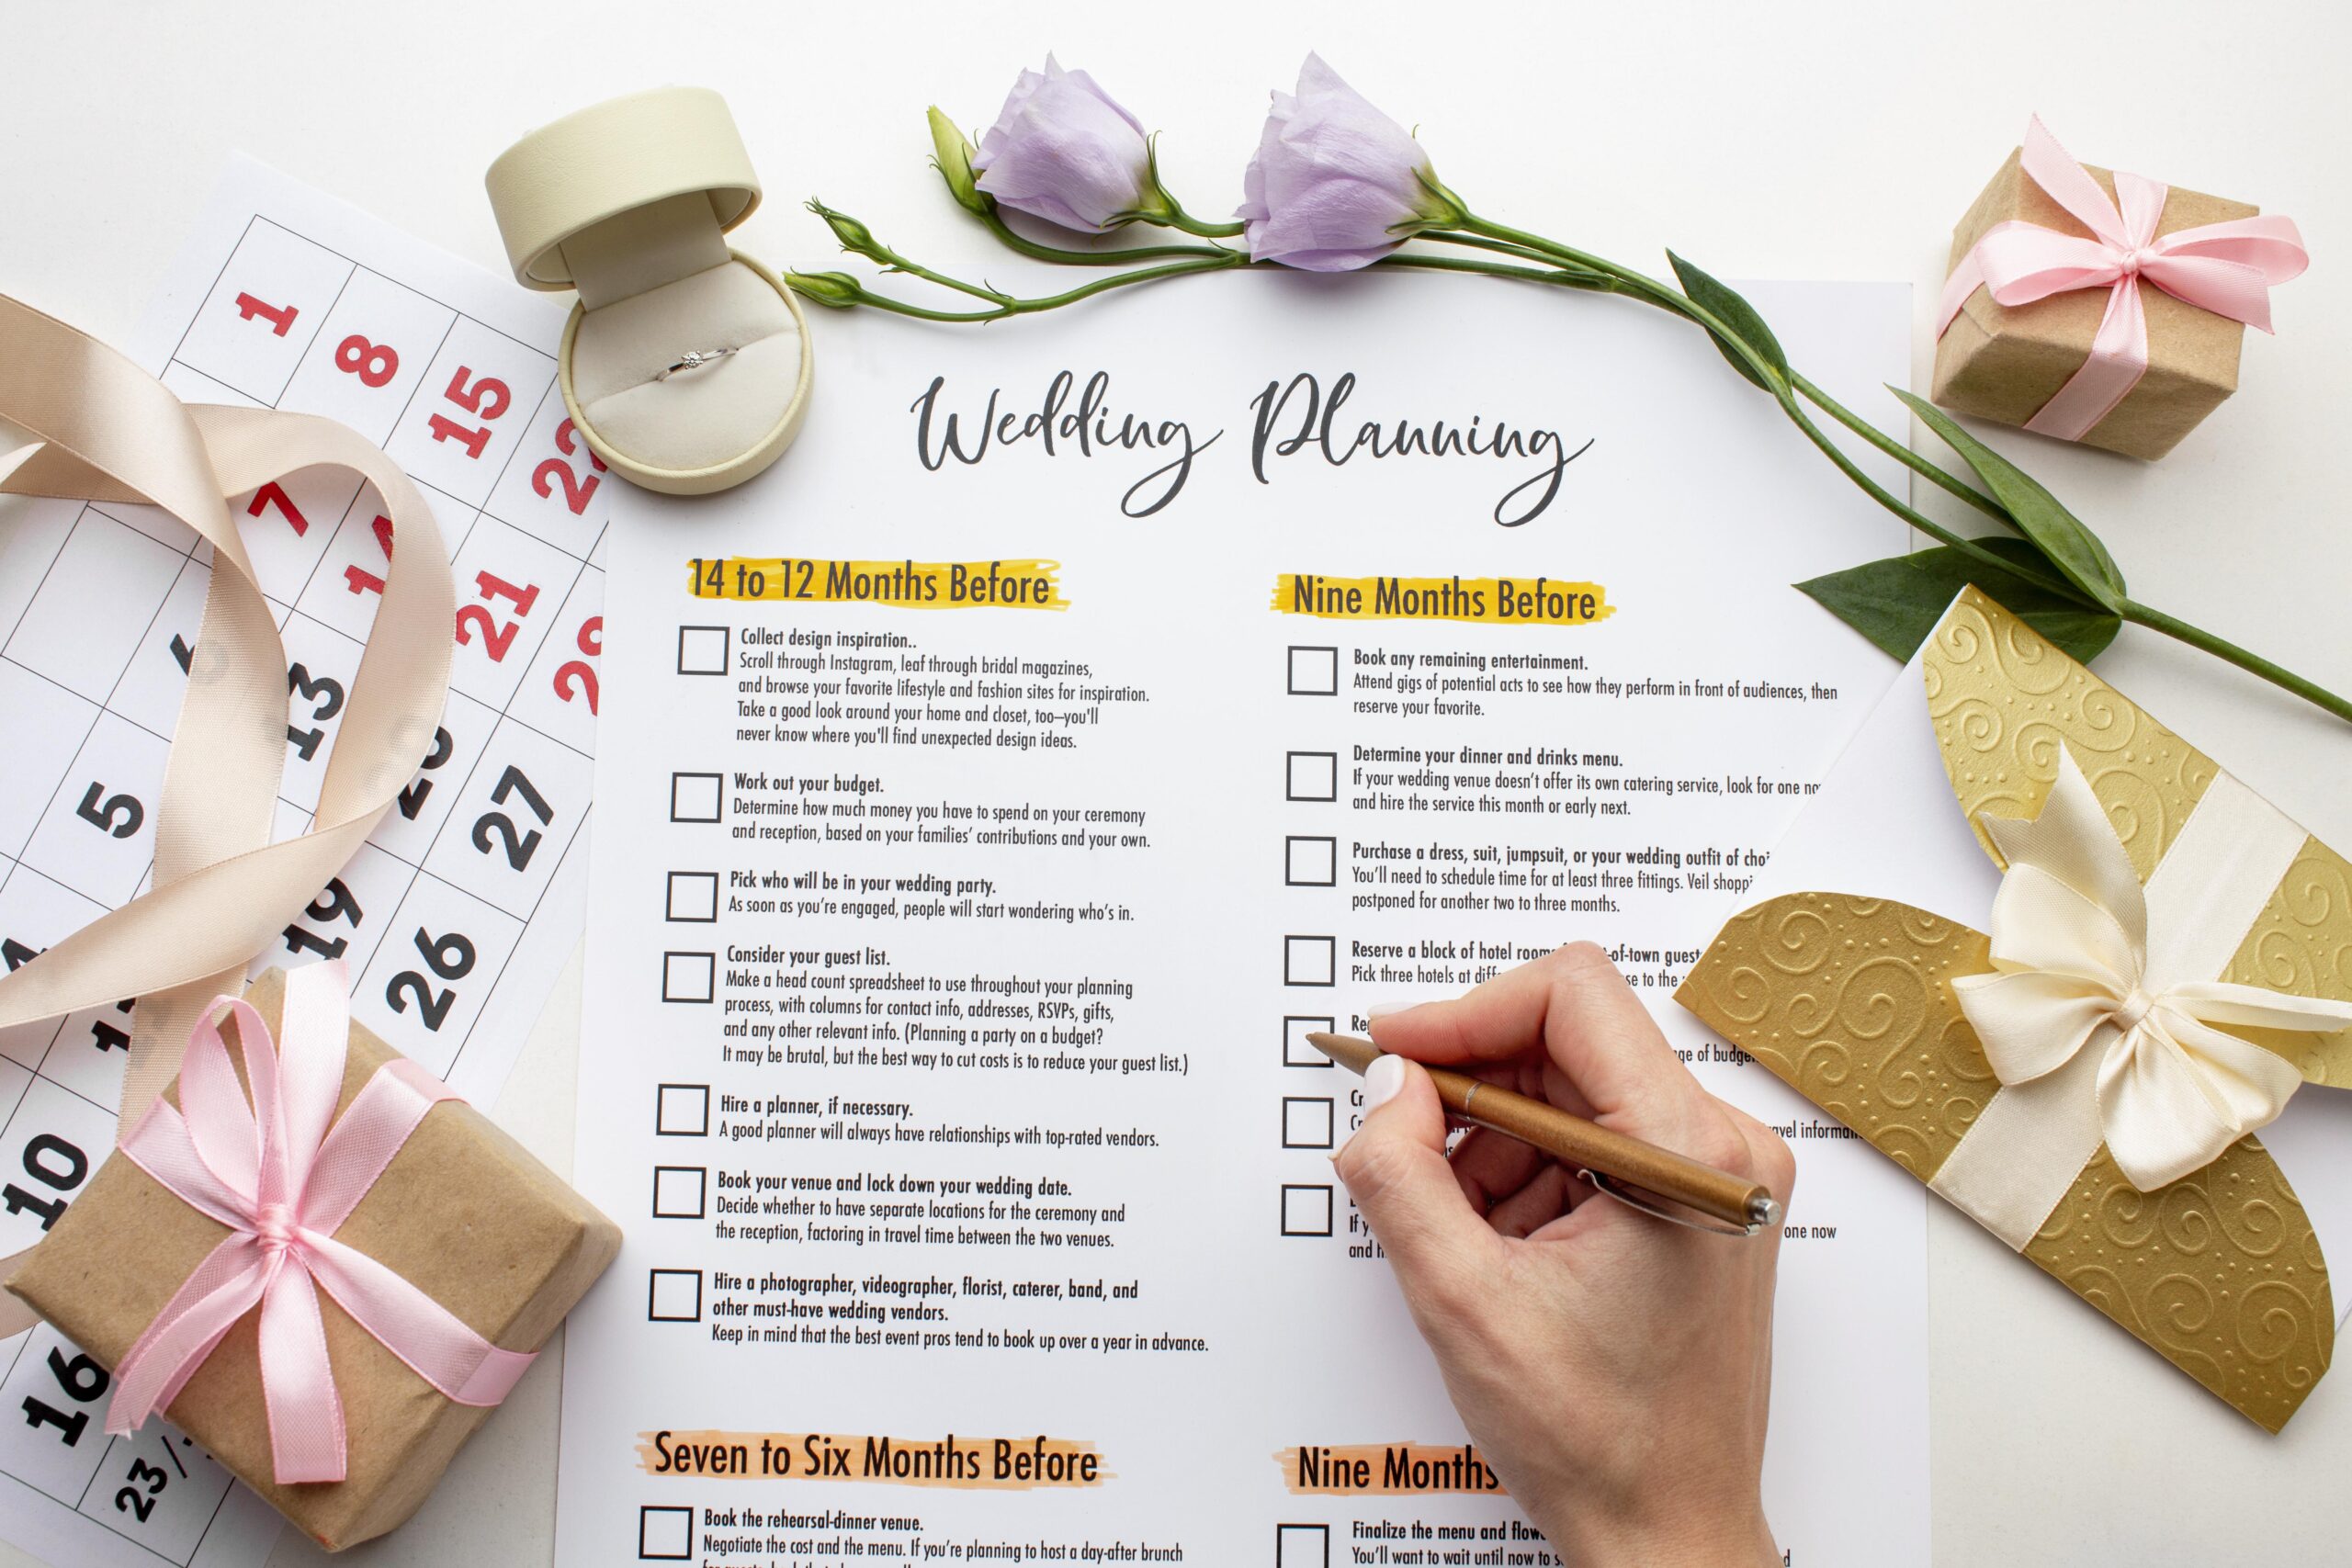 Wedding Planning
14 to 12 Months Before
Collect design inspiration..
Scroll through Instagram, leaf through bridal magazines,
and browse your favorite lifestyle and fashion sites for inspiration.
Take a good look around your home and closet, too—you'll
never know where you'll find unexpected design ideas.
Work out your budget.
Determine how much money you have to spend on your ceremony
and reception, based on your families' contributions and your own.
Pick who will be in your wedding party.
As soon as you're engaged, people will start wondering who's in.
Consider your guest list.
Make a head count spreadsheet to use throughout your planning
process, with columns for contact info, addresses, RSVPs, gifts,
and any other relevant info. (Planning a party on a budget?
It may be brutal, but the best way to cut costs is to reduce your guest list.)
Hire a planner, if necessary.
A good planner will always have relationships with top-rated vendors.
Book your venue and lock down your wedding date.
Decide whether to have separate locations for the ceremony and
the reception, factoring in travel time between the two venues.
Hire a photographer, videographer, florist, caterer, band, and
other must-have wedding vendors.
Keep in mind that the best event pros tend to book up over a year in advance.
Seven to Six Months Before
Book the rehearsal-dinner venue.
Negotiate the cost and the menu. If you're planning to host a day-after brunch
Nine Months Before
Book any remaining entertainment.
Attend gigs of potential acts to see how they perform in front of audiences, then
reserve your favorite.
Determine your dinner and drinks menu.
If your wedding venue doesn't offer its own catering service, look for one
and hire the service this month or early next.
Purchase a dress, suit, jumpsuit, or your wedding outfit of
You'll need to schedule time for at least three fittings. Veil
postponed for another two to three months.
Reserve a block of hotel of-town
Pick three hotels at to the
of
one now
and
Nine Months
Finalize the menu and
You'll want to wait until now to
1
8
15
22
7
14
21
28
6
13
20
27
5
19
26
10
16
23/